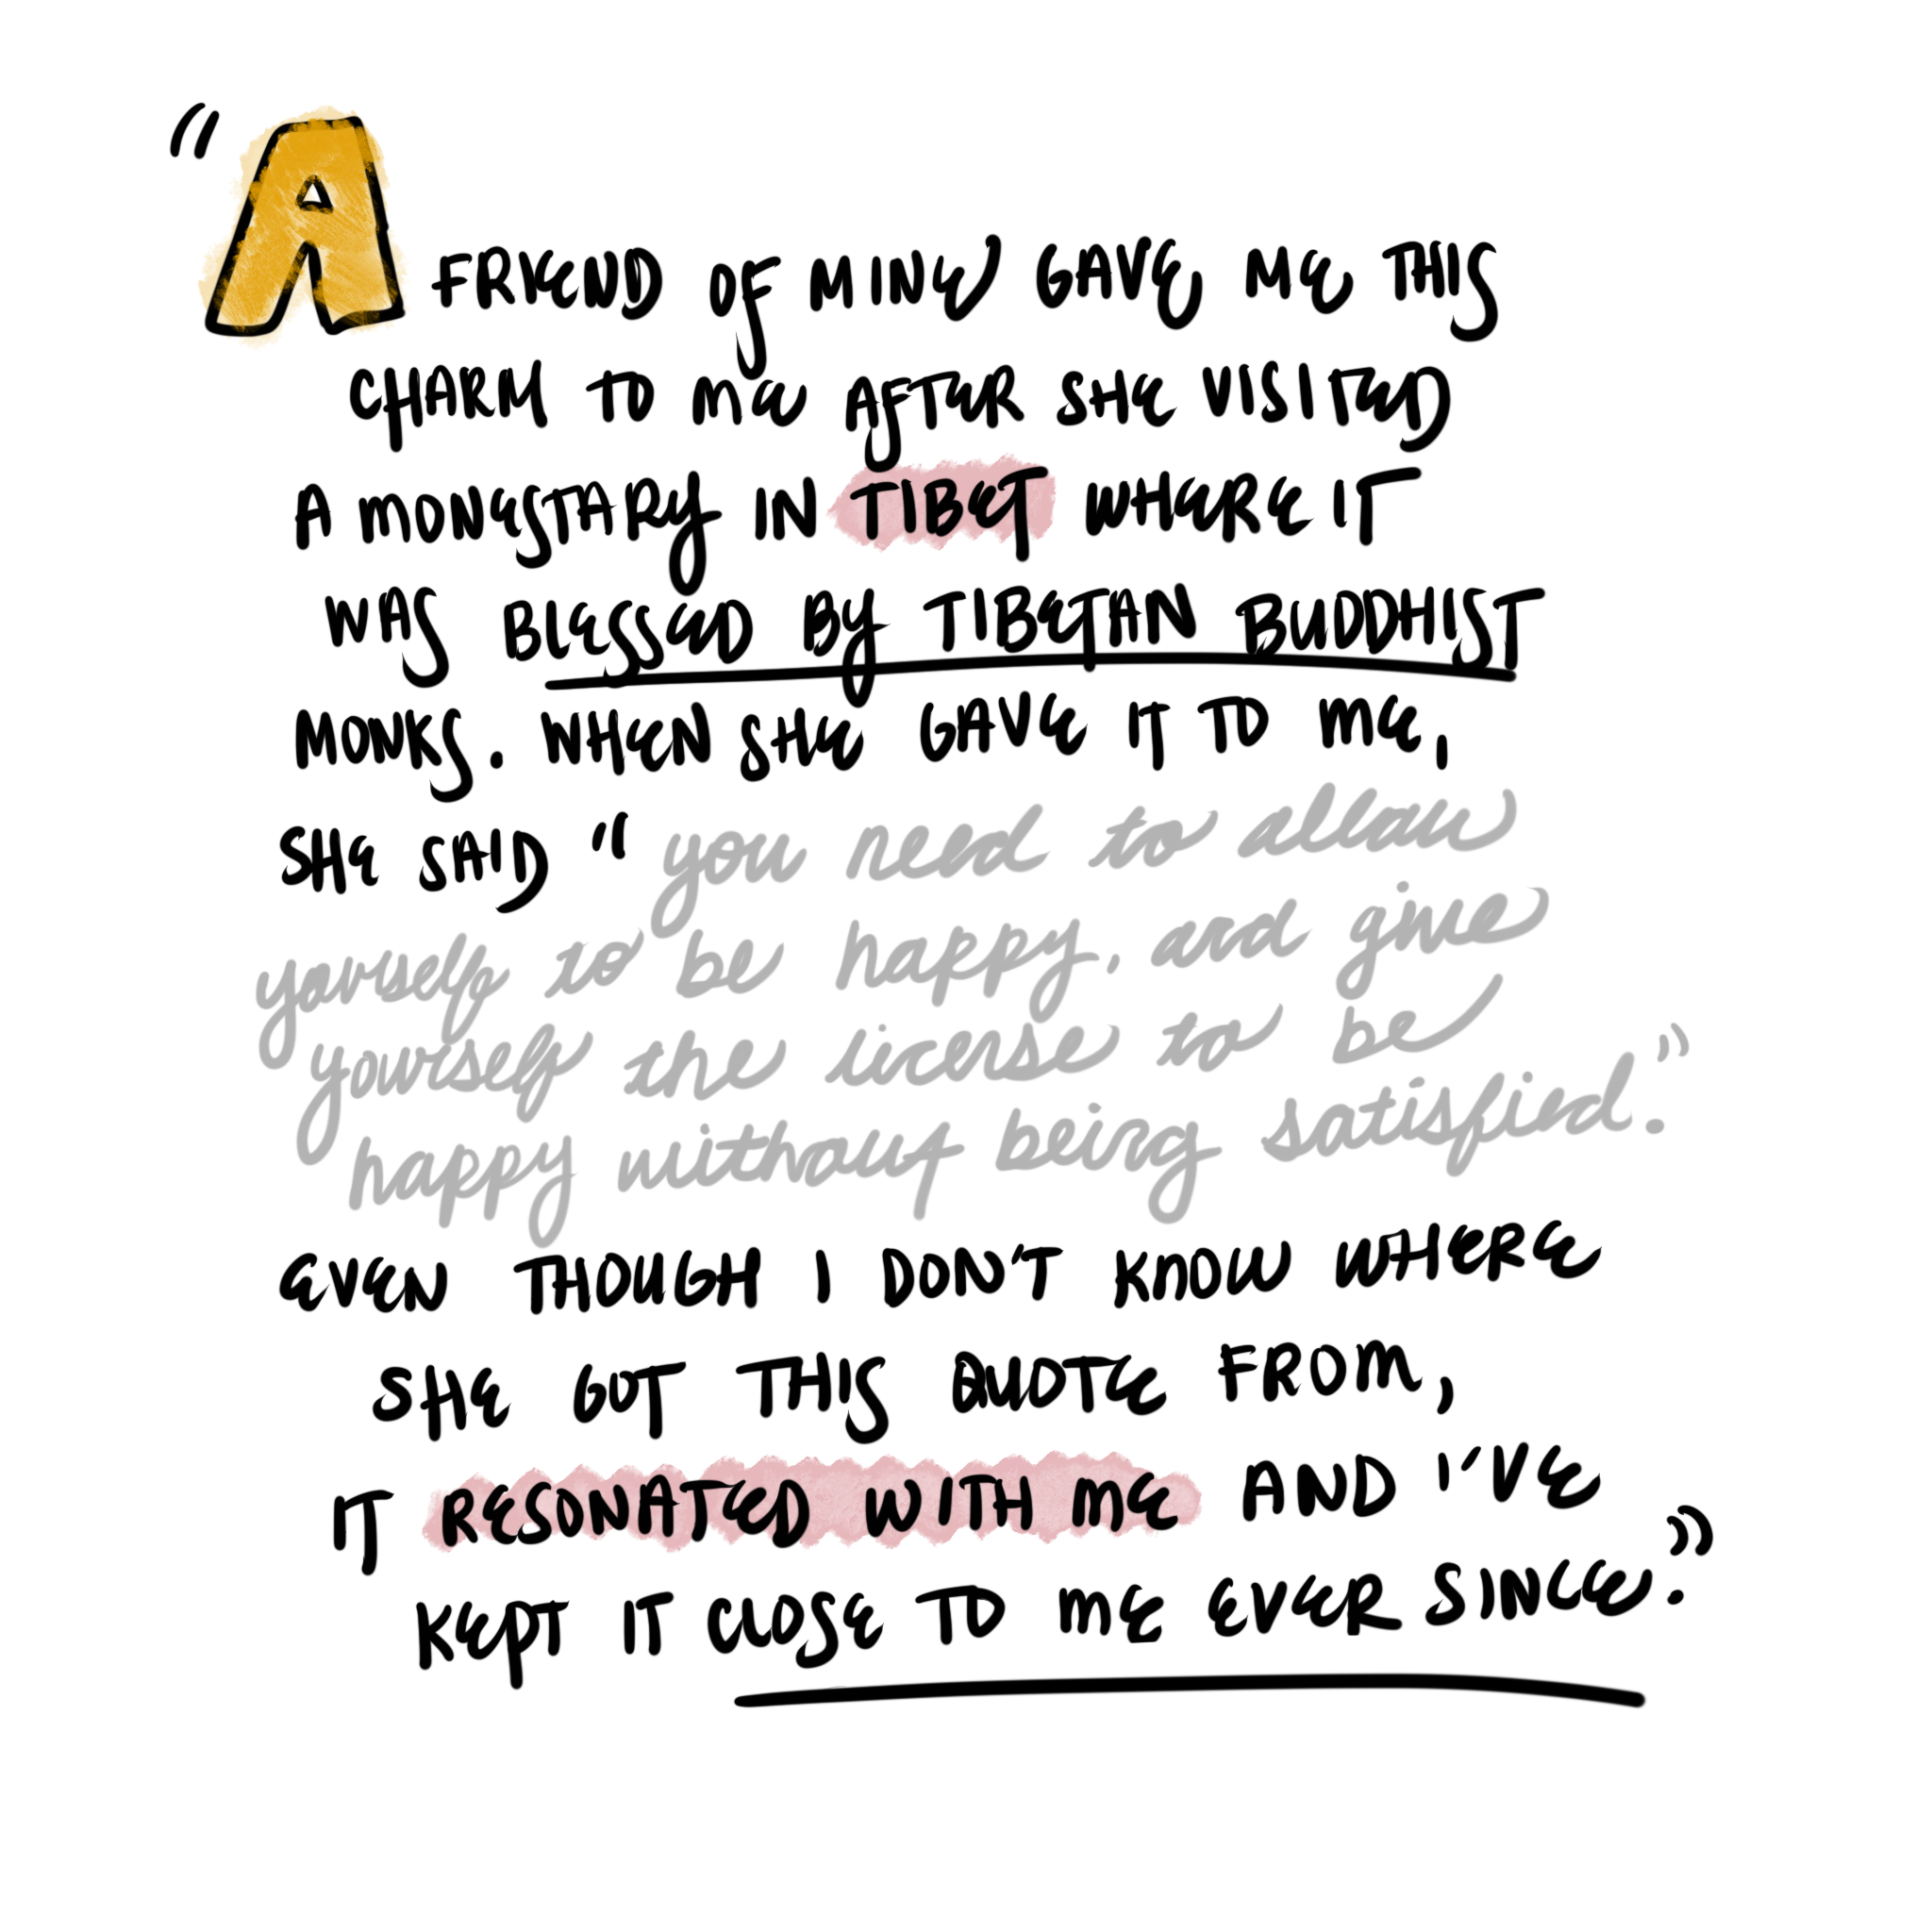 "A FRIEND OF MINE GAVE ME THIS
CHARM TO ME AFTER SHE VISITED
A MONESTARY IN TIBET WHERE IT
WAS BLESSED BY TIBETAN BUDDHIST
MONKS. WHEN SHE GAVE IT TO ME,
SHE SAID "you need to allow
yourself to be happy, and give
yourself the license to be
happy without being satisfied."
EVEN THOUGH I DON'T KNOW WHERE
SHE GOT THIS QUOTE FROM,
IT RESONATED WITH ME AND I'VE
KEPT IT CLOSE TO ME EVER SINCE."